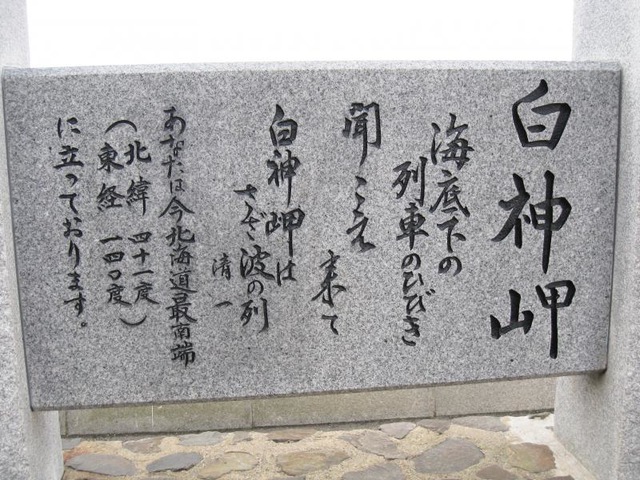 白神岬
海底下の
列車のひびき
聞こえ
来て
白神岬は
さざ波の列
清一
あなたは今北海道最南端
（北緯 四十一度
東経 一四〇度）
に立っております。